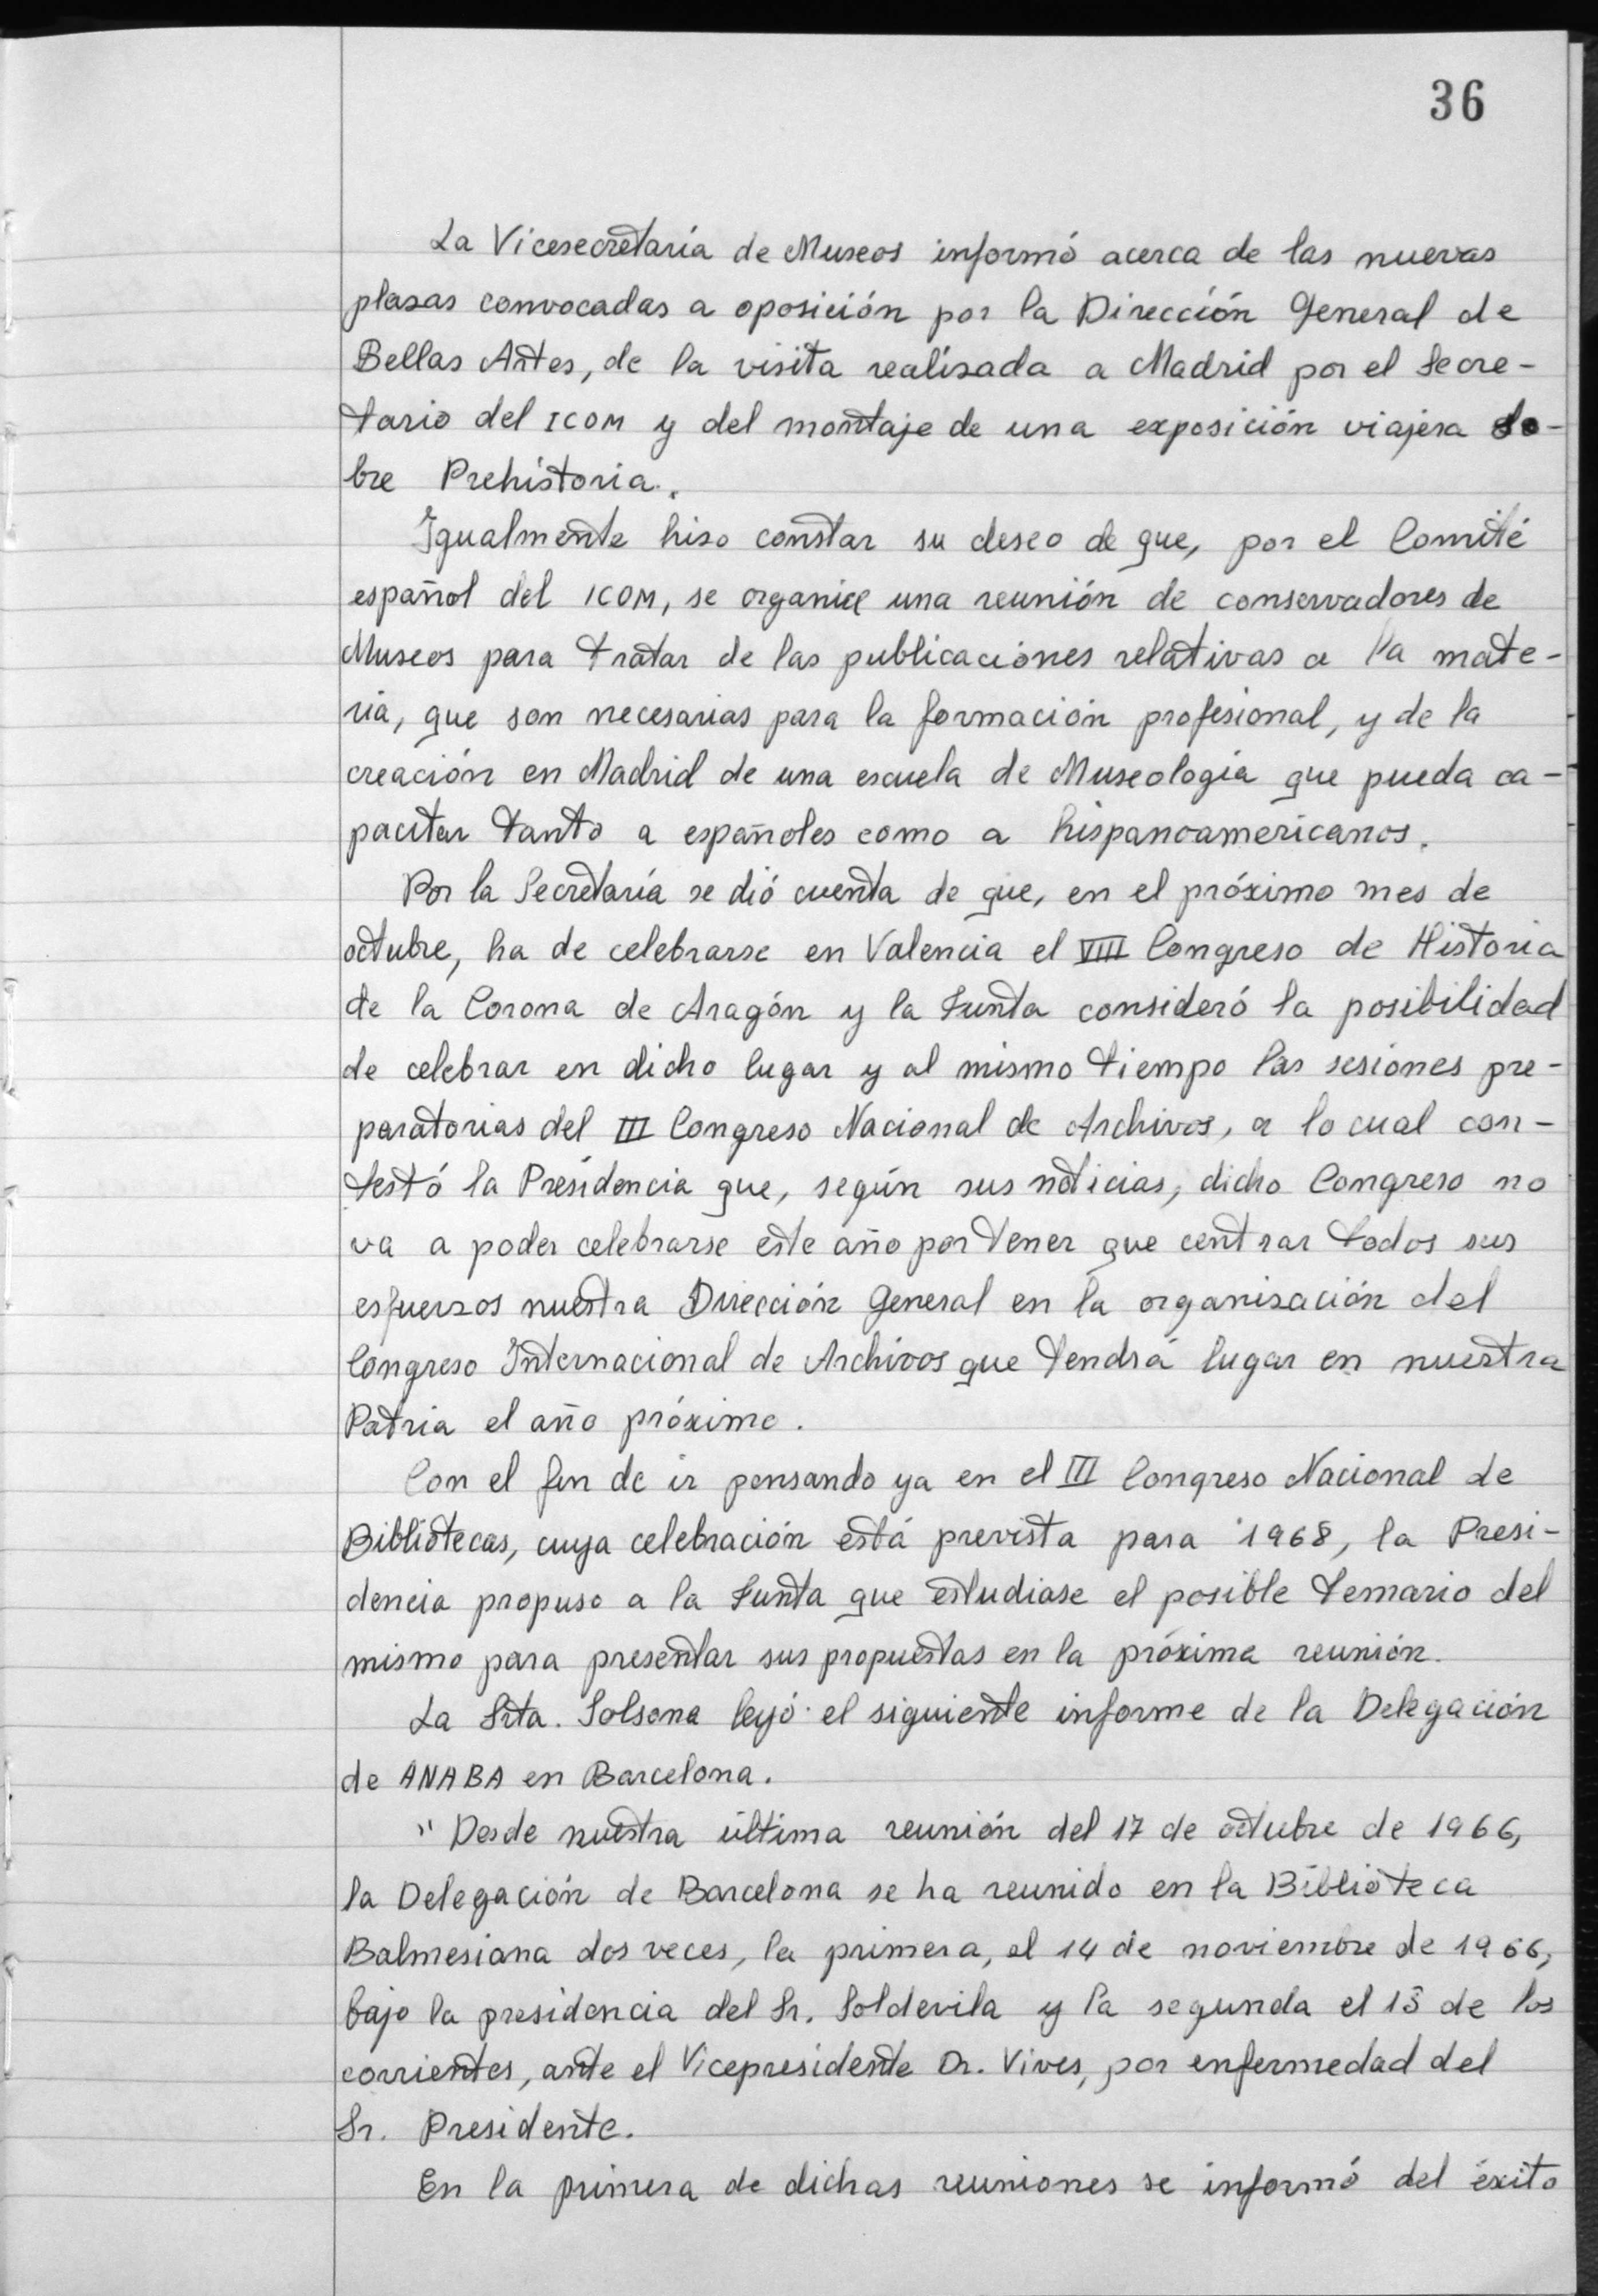 36
La Vicesecretaría de Museos informó acerca de las nuevas
plazas convocadas a oposición por la Dirección General de
Bellas Artes, de la visita realizada a Madrid por el Secre-
tario del ICOM y del montaje de una exposición viajera so-
bre Prehistoria.
Igualmente hizo constar su deseo de que, por el Comité
español del ICOM, se organice una reunión de conservadores de
Museos para tratar de las publicaciones relativas a la mate-
ria, que son necesarias para la formación profesional, y de la
creación en Madrid de una escuela de Museología que pueda ca-
pacitar tanto a españoles como a hispanoamericanos.
Por la Secretaría se dió cuenta de que, en el próximo mes de
octubre, ha de celebrarse en Valencia el VIII Congreso de Historia
de la Corona de Aragón y la Junta consideró la posibilidad
de celebrar en dicho lugar y al mismo tiempo las sesiones pre-
paratorias del III Congreso Nacional de Archivos, a lo cual con-
testó la Presidencia que, según sus noticias, dicho Congreso no
va a poder celebrarse este año por tener que centrar todos sus
esfuerzos nuestra Dirección General en la organización del
Congreso Internacional de Archivos que tendrá lugar en nuestra
Patria el año próximo.
Con el fin de ir pensando ya en el III Congreso Nacional de
Bibliotecas, cuya celebración está prevista para 1968, la Presi-
dencia propuso a la Junta que estudiase el posible temario del
mismo para presentar sus propuestas en la próxima reunión.
La Srta. Solsona leyó el siguiente informe de la Delegación
de ANABA en Barcelona.
"Desde nuestra última reunión del 17 de octubre de 1966,
la Delegación de Barcelona se ha reunido en la Biblioteca
Balmesiana dos veces, la primera, el 14 de noviembre de 1966,
bajo la presidencia del Sr. Soldevila y la segunda el 13 de los
corrientes, ante el Vicepresidente Dr. Vives, por enfermedad del
Sr. Presidente.
En la primera de dichas reuniones se informó del éxito